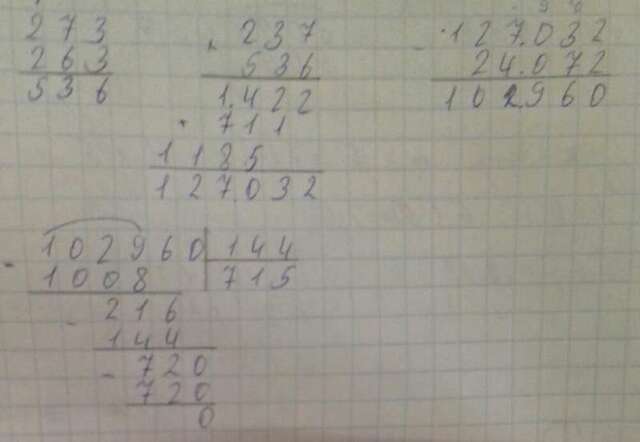 273
263
536
× 237
536
1.422
+ 711
1185
127.032
- 127.032
24.072
102.960
- 102960 144
1008 715
- 216
144
- 720
720
0